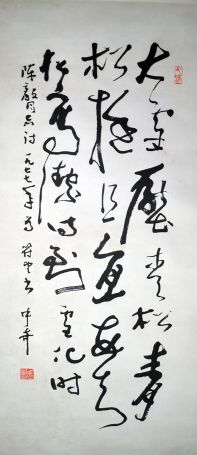 大雪压青松青
松挺且直要知
松高洁待到雪化时
陈毅同志诗一九七七年